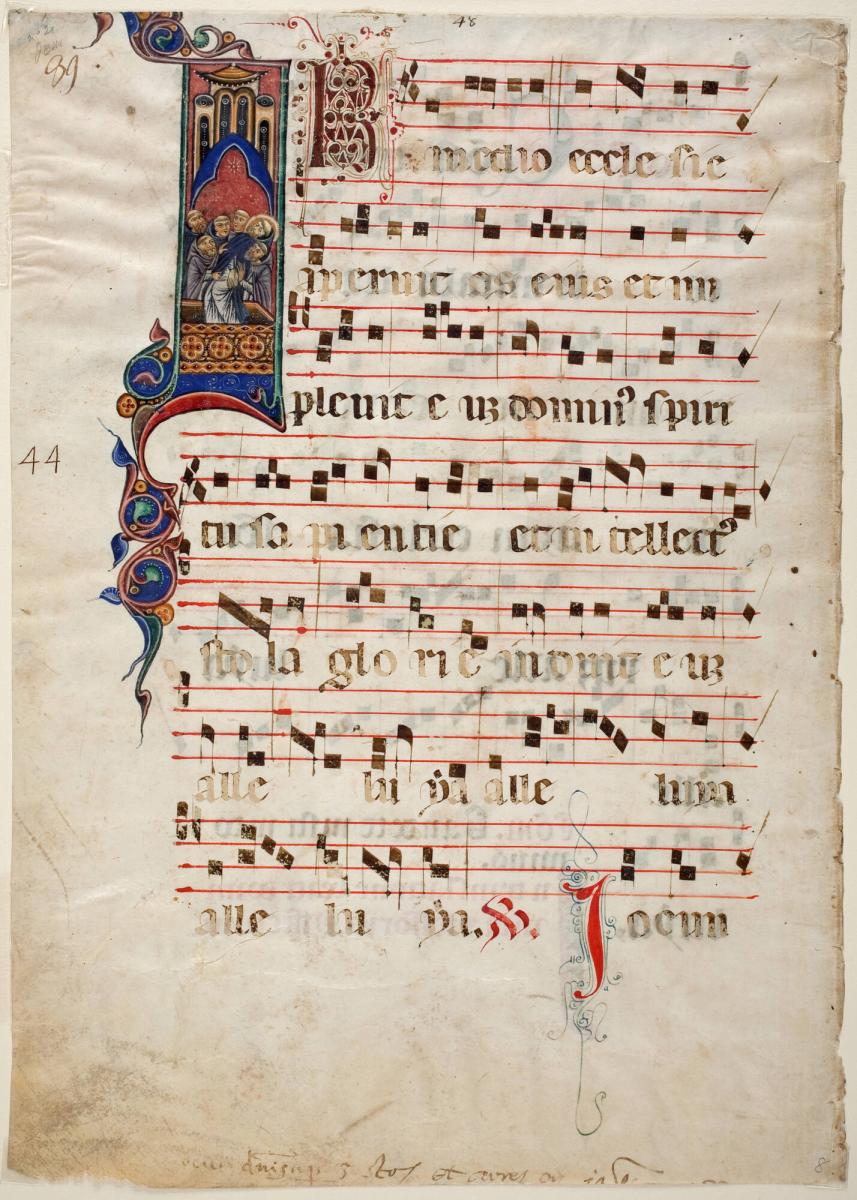 48
89
In medio eccle sie
aperuit os eius et im
plevit e uȝ domin⁹ spiri
tu sa pi entie et in tellect⁹
sto la glo ri e induit e uȝ
44
alle lu ya alle luya
alle lu ya. V. Iocun
8